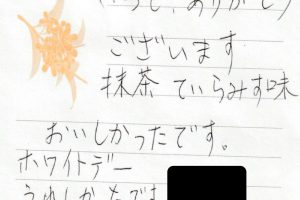 ありがとう
ございます
抹茶 てぃらみす味
おいしかったです。
ホワイトデー
うれしかったです